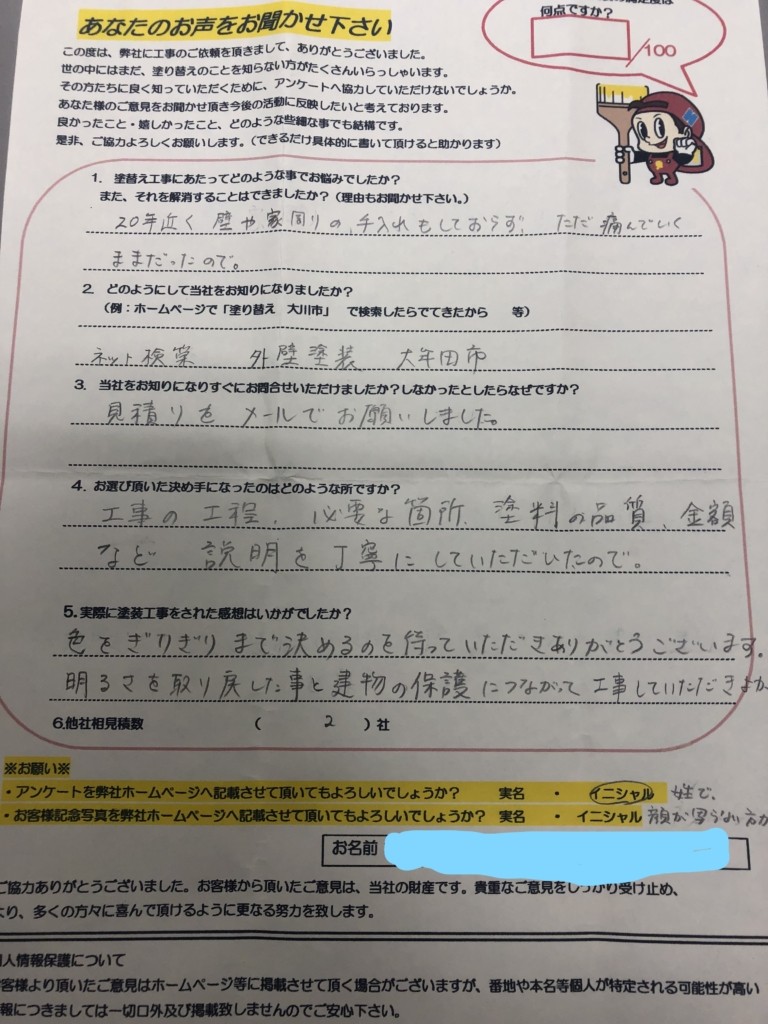 あなたのお声をお聞かせ下さい
何点ですか?
/100
この度は、弊社に工事のご依頼を頂きまして、ありがとうございました。
世の中にはまだ、塗り替えのことを知らない方がたくさんいらっしゃいます。
その方たちに良く知っていただくために、アンケートへ協力していただけないでしょうか。
あなた様のご意見をお聞かせ頂き今後の活動に反映したいと考えております。
良かったこと・嬉しかったこと、どのような些細な事でも結構です。
是非、ご協力よろしくお願いします。(できるだけ具体的に書いて頂けると助かります)
1. 塗替え工事にあたってどのような事でお悩みでしたか?
また、それを解消することはできましたか?(理由もお聞かせ下さい。)
20年近く 壁や家周りの手入れもしておらず、ただ痛んでいく
ままだったので。
2. どのようにして当社をお知りになりましたか?
(例:ホームページで「塗り替え 大川市」で検索したらでてきたから 等)
ネット検索 外壁塗装 大牟田市
3. 当社をお知りになりすぐにお問合せいただけましたか?しなかったとしたらなぜですか?
見積りを メールで お願いしました。
4. お選び頂いた決め手になったのはどのような所ですか?
工事の工程、必要な箇所、塗料の品質、金額
など 説明を丁寧にしていただいたので。
5.実際に塗装工事をされた感想はいかがでしたか?
色をぎりぎりまで決めるのを待っていただきありがとうございます。
明るさを取り戻した事と建物の保護につながって工事していただきよか
6.他社相見積数 ( 2 )社
※お願い※
・アンケートを弊社ホームページへ記載させて頂いてもよろしいでしょうか? 実名 ・ イニシャル 姓で、
・お客様記念写真を弊社ホームページへ記載させて頂いてもよろしいでしょうか? 実名 ・ イニシャル 顔が写らない方が
お名前
ご協力ありがとうございました。お客様から頂いたご意見は、当社の財産です。貴重なご意見をしっかり受け止め、
より、多くの方々に喜んで頂けるように更なる努力を致します。
個人情報保護について
客様より頂いたご意見はホームページ等に掲載させて頂く場合がございますが、番地や本名等個人が特定される可能性が高い
報につきましては一切口外及び掲載致しませんのでご安心下さい。